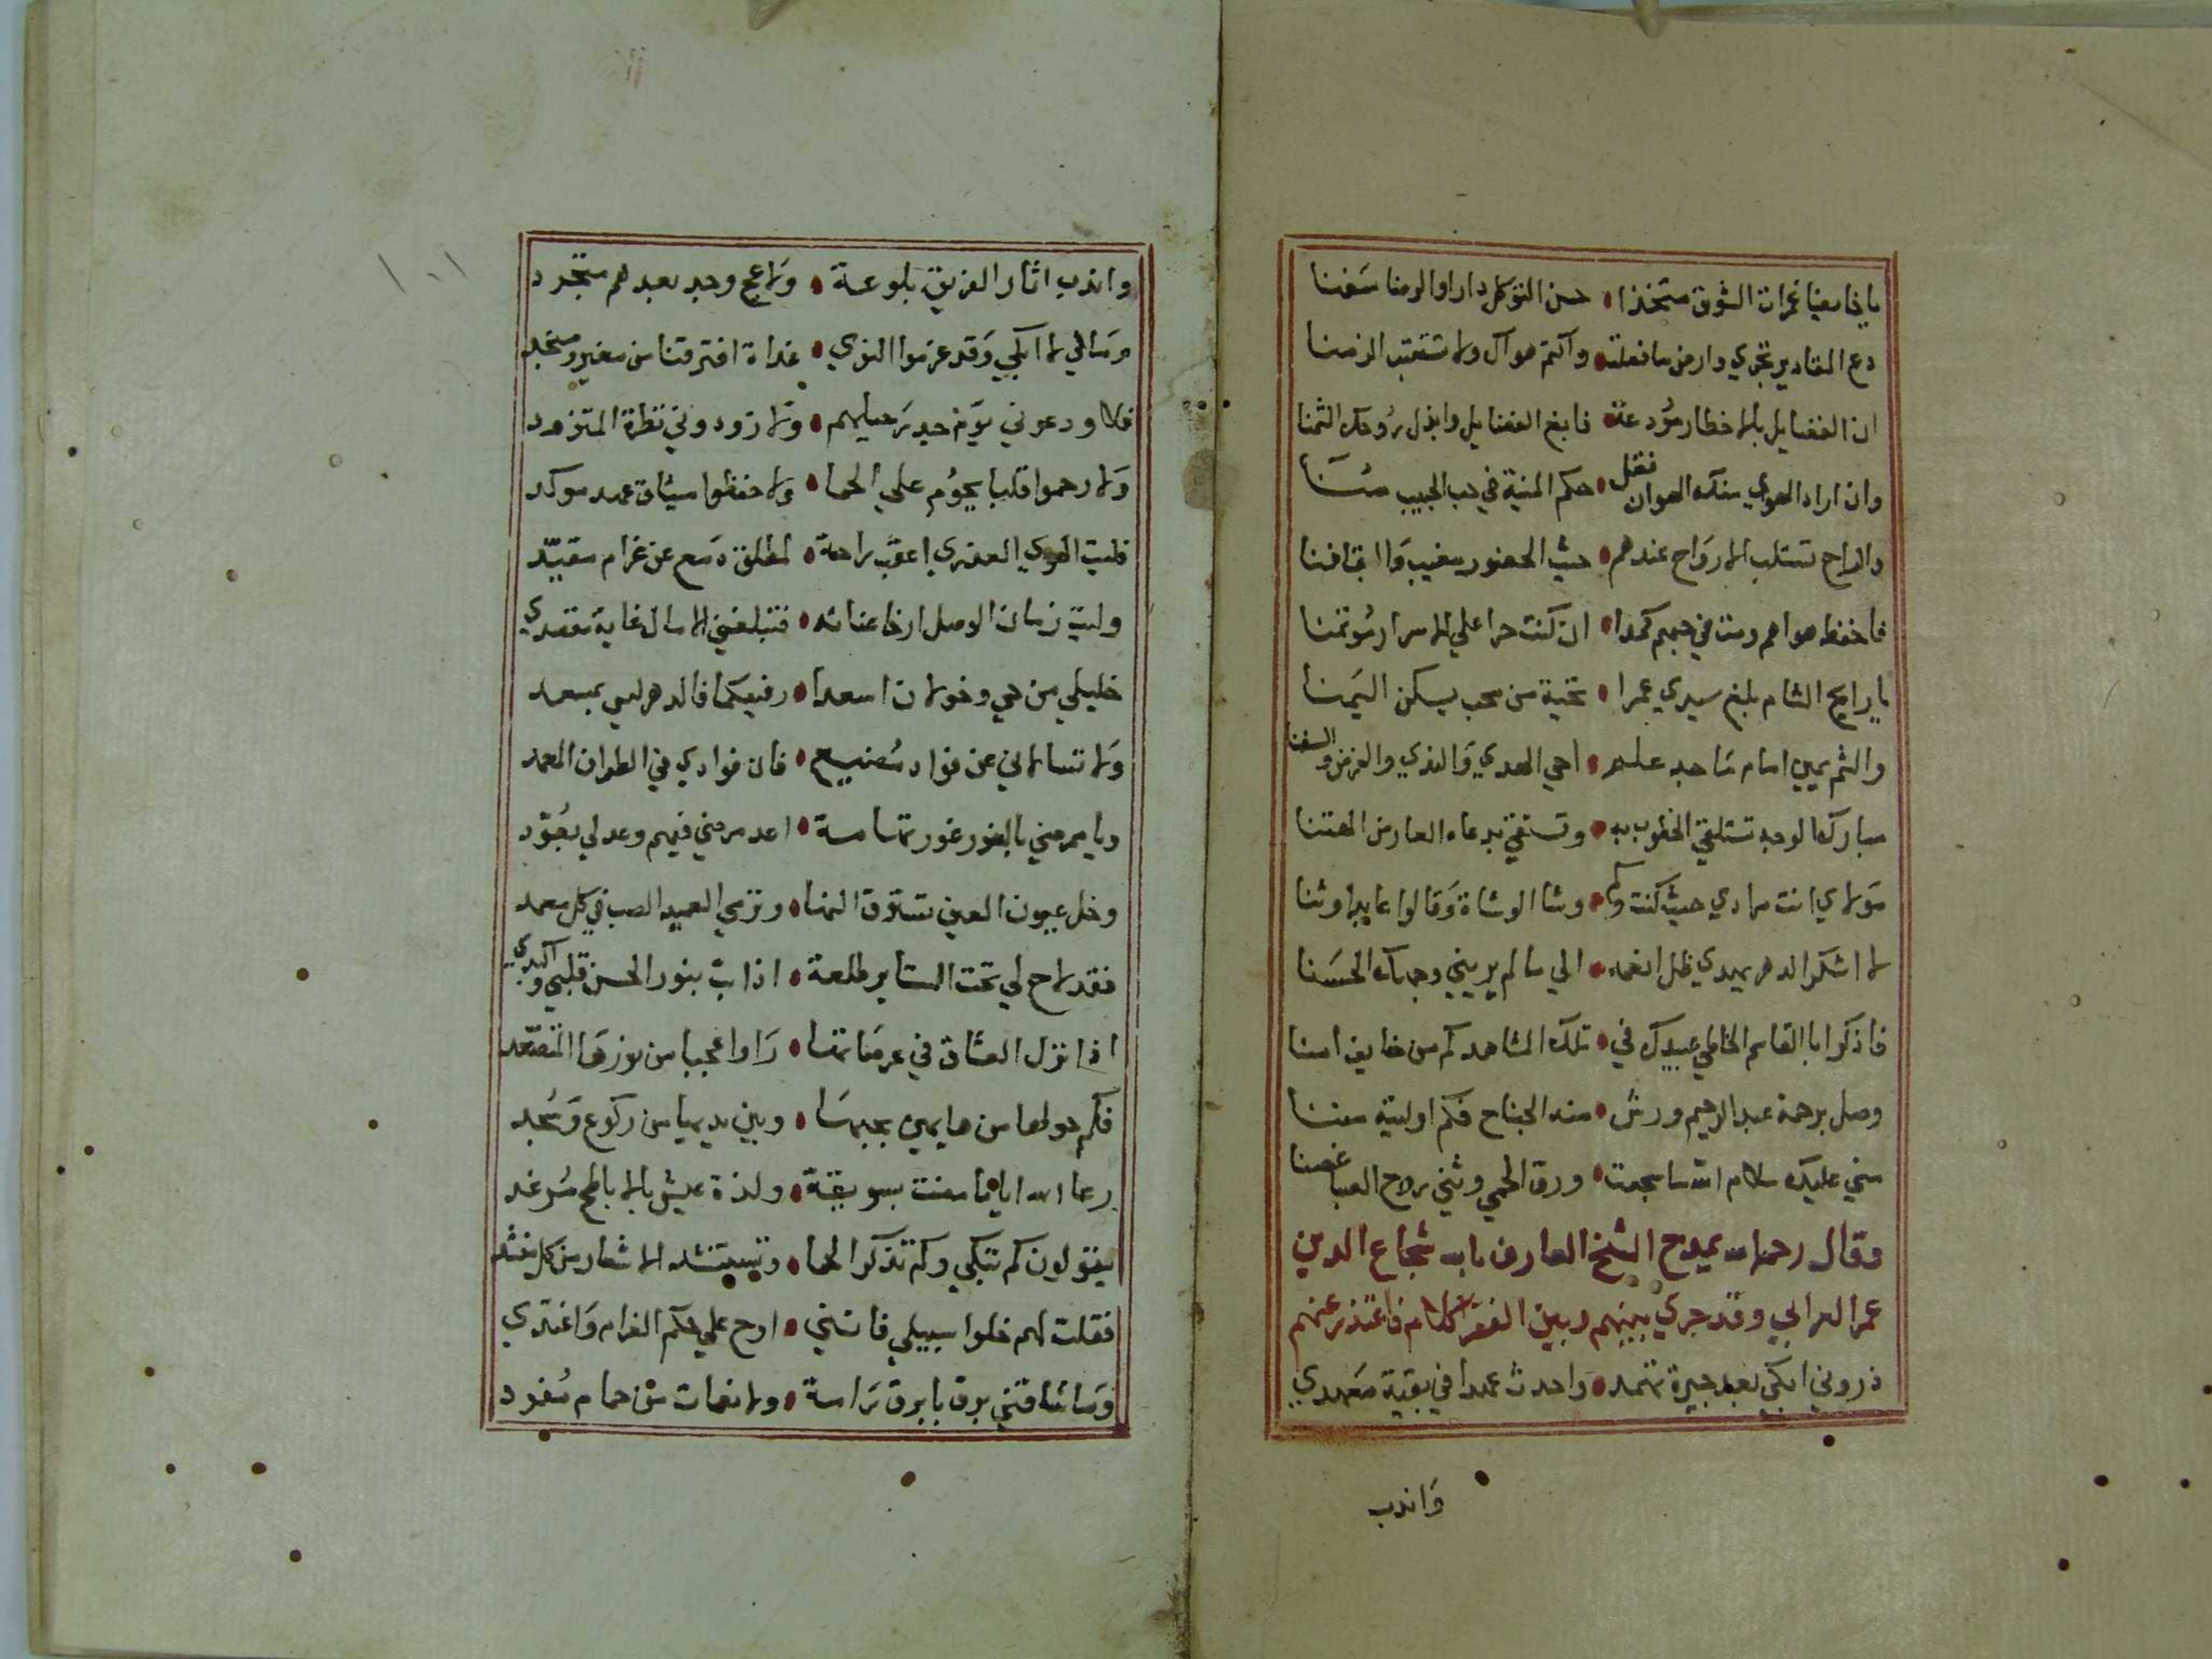 يا خايضا غمرات الشوق متخذا • حسن التوكل دارا والرضا سفنا
دع المقادير تجري وارض ما فعلت • واكتم هواك ولا تستعتب الزمنا
ان الفضايل بالاخطار مودعة • فابغ الفضايل وابذل روحك الثمنا
وان اراد الهوي منك الهوان فقل • حكم المنية في حب الحبيب منا
والراح تستلب الارواح عندهم • حيث الحضور مغيب والبقا فنا
فاحفظ هواهم ومت في حبهم كمدا • ان كنت حرا علي الاسرار مؤتمنا
يا رايح الشام بلغ سيدي عمرا • تحية من محب يسكن اليمنا
والثم يمين امام ماجد علم • احي الهدي والندي والفرض والسننا
مبارك الوجه تستلقي الخطوب به • وتستقي بدعاه العارض الهتنا
مولاي انت مرادي حيث كنت وكم • وشا الوشاة وقالوا عابد وثنا
لا اشكوا الدهر يهدي ظل انعمه • الي ما لم يريني وجهك الحسنا
فاذكر ابا القاسم الخاطي عبيدك في • تلك المشاهد كم من خايف امنا
وصل برحمة عبد الرحيم ورش • منه الجناح فكم اوليته مننا
مني عليك سلام الله ما سجعت • ورق الحمي وثني روح الصبا غصنا
وقال رحمه الله يمدح الشيخ العارف بالله شجاع الدين
عمر العرابي وقد جري بينهم وبين الفقرا كلام فاعتذر عنهم
ذروني ابكي بعد جيرة ثهمد • واحدث عهدا في بقية معهدي
واندب
واندب اثار الفريق بلوعة • ولاعج وجد بعدهم متجرد
ومالي لا ابكي وقد عزموا النوي • غداة افترقنا من مغير ومنجد
فلا ودعوني يوم جد رحيلهم • ولا زودوني نظرة المتزود
ولا رحموا قلبا يحوم علي الحما • ولا حفظوا ميثاق عهد موكد
فليت الهوي العذري اعقب راحة • لمطلق دمع عن غرام مقيد
وليت زمان الوصل ارخا عنانه • فتبلغني الامال غاية مقصدي
خليلي من حي وخولان اسعدا • رفيقكما فالدهر ليس بمسعد
ولا تسالاني عن فواد مضيع • فان فوادي في الطراف الممدد
ويا ممرضي بالغور غور تهامة • اعد مرضي فيهم وعد لي بعود
وخل عيون العين تسترق النها • وترمي العميد الصب في كل معمد
فقد لاح لي تحت الستاير طلعة • اذابت بنور الحسن قلبي واكبدي
اذا نزل العشاق في عرصاتها • راوا عجبا من نورها المتصعد
فكم حولها من هايمين بحبها • وبين يديها من ركوع وسجد
رعا الله اياما مضت بسويقة • ولذة عيش بالاباطح مرغد
يقولون كم تبكي وكم تذكر الحما • وتستنشد الاشعار من كل منشد
فقلت لهم خلوا سبيلي فانني • اروح علي حكم الغرام واغتدي
وما شاقني برق بابرق رامة • ولا نغمات من حمام مغرد
١٠١